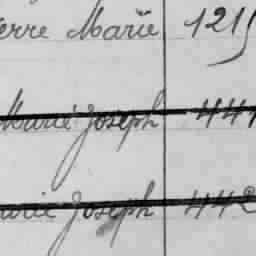 erre Marie 1215
Marie Joseph 441
arie Joseph 442